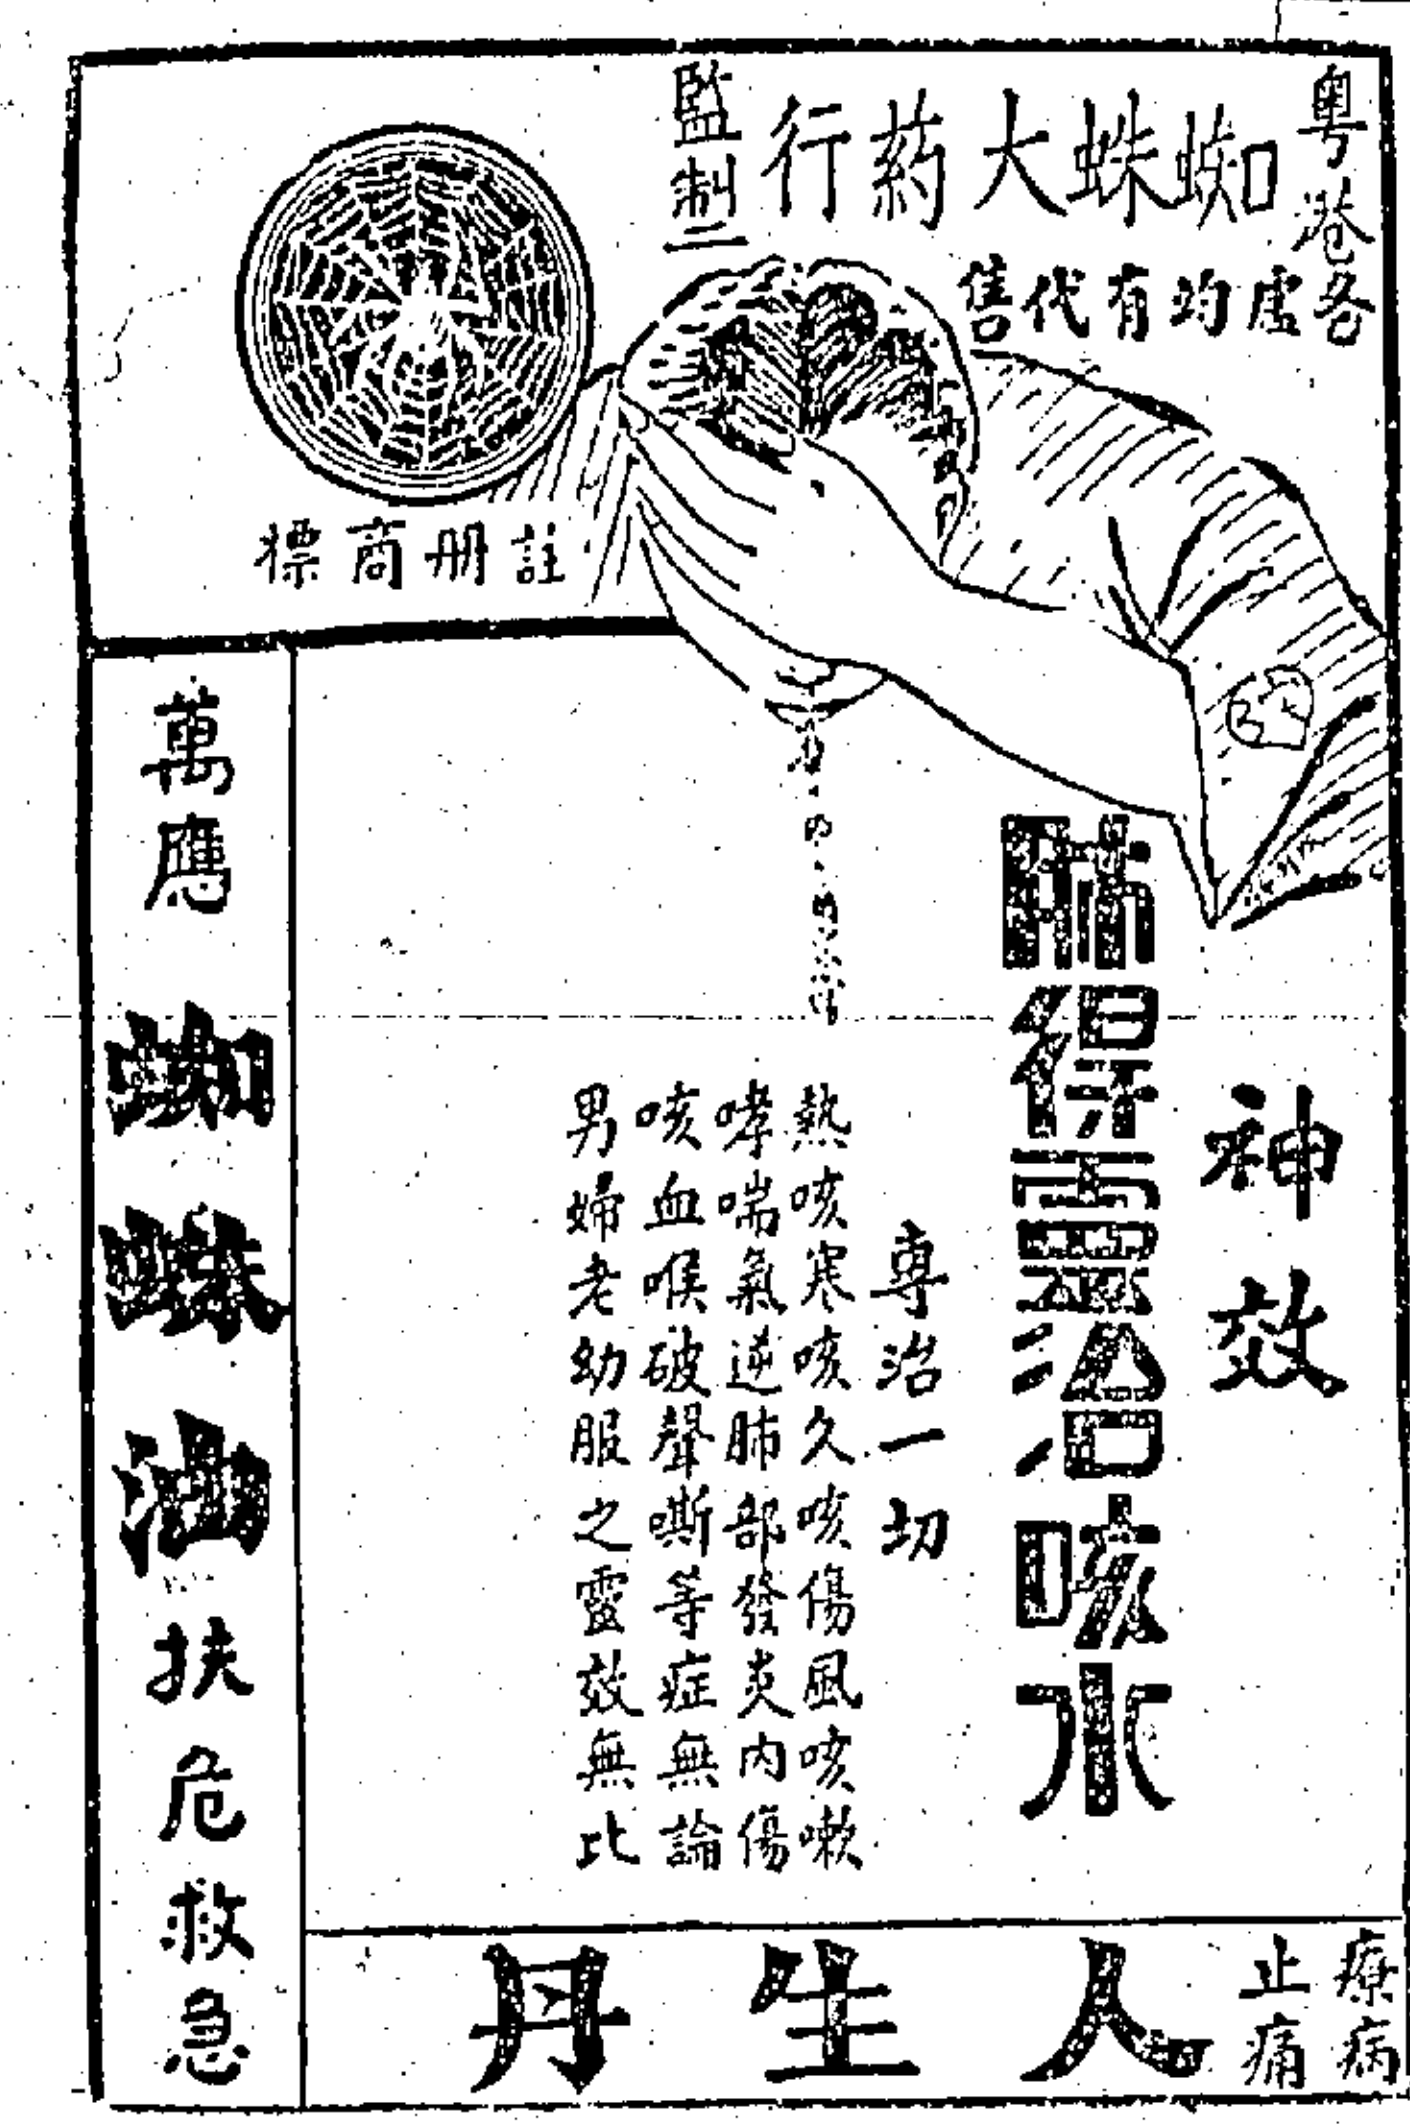 粤港各
處均有代售
蜘蛛大葯行
監制二
註册商標
神效
肺得靈治咳水
專治一切
熱咳寒咳久咳傷風咳嗽
哮喘氣逆肺部發炎内傷
咳血喉破聲嘶等症無論
男婦老幼服之靈效無比
萬應
蜘蛛油
扶危救急
療病
止痛
人生丹